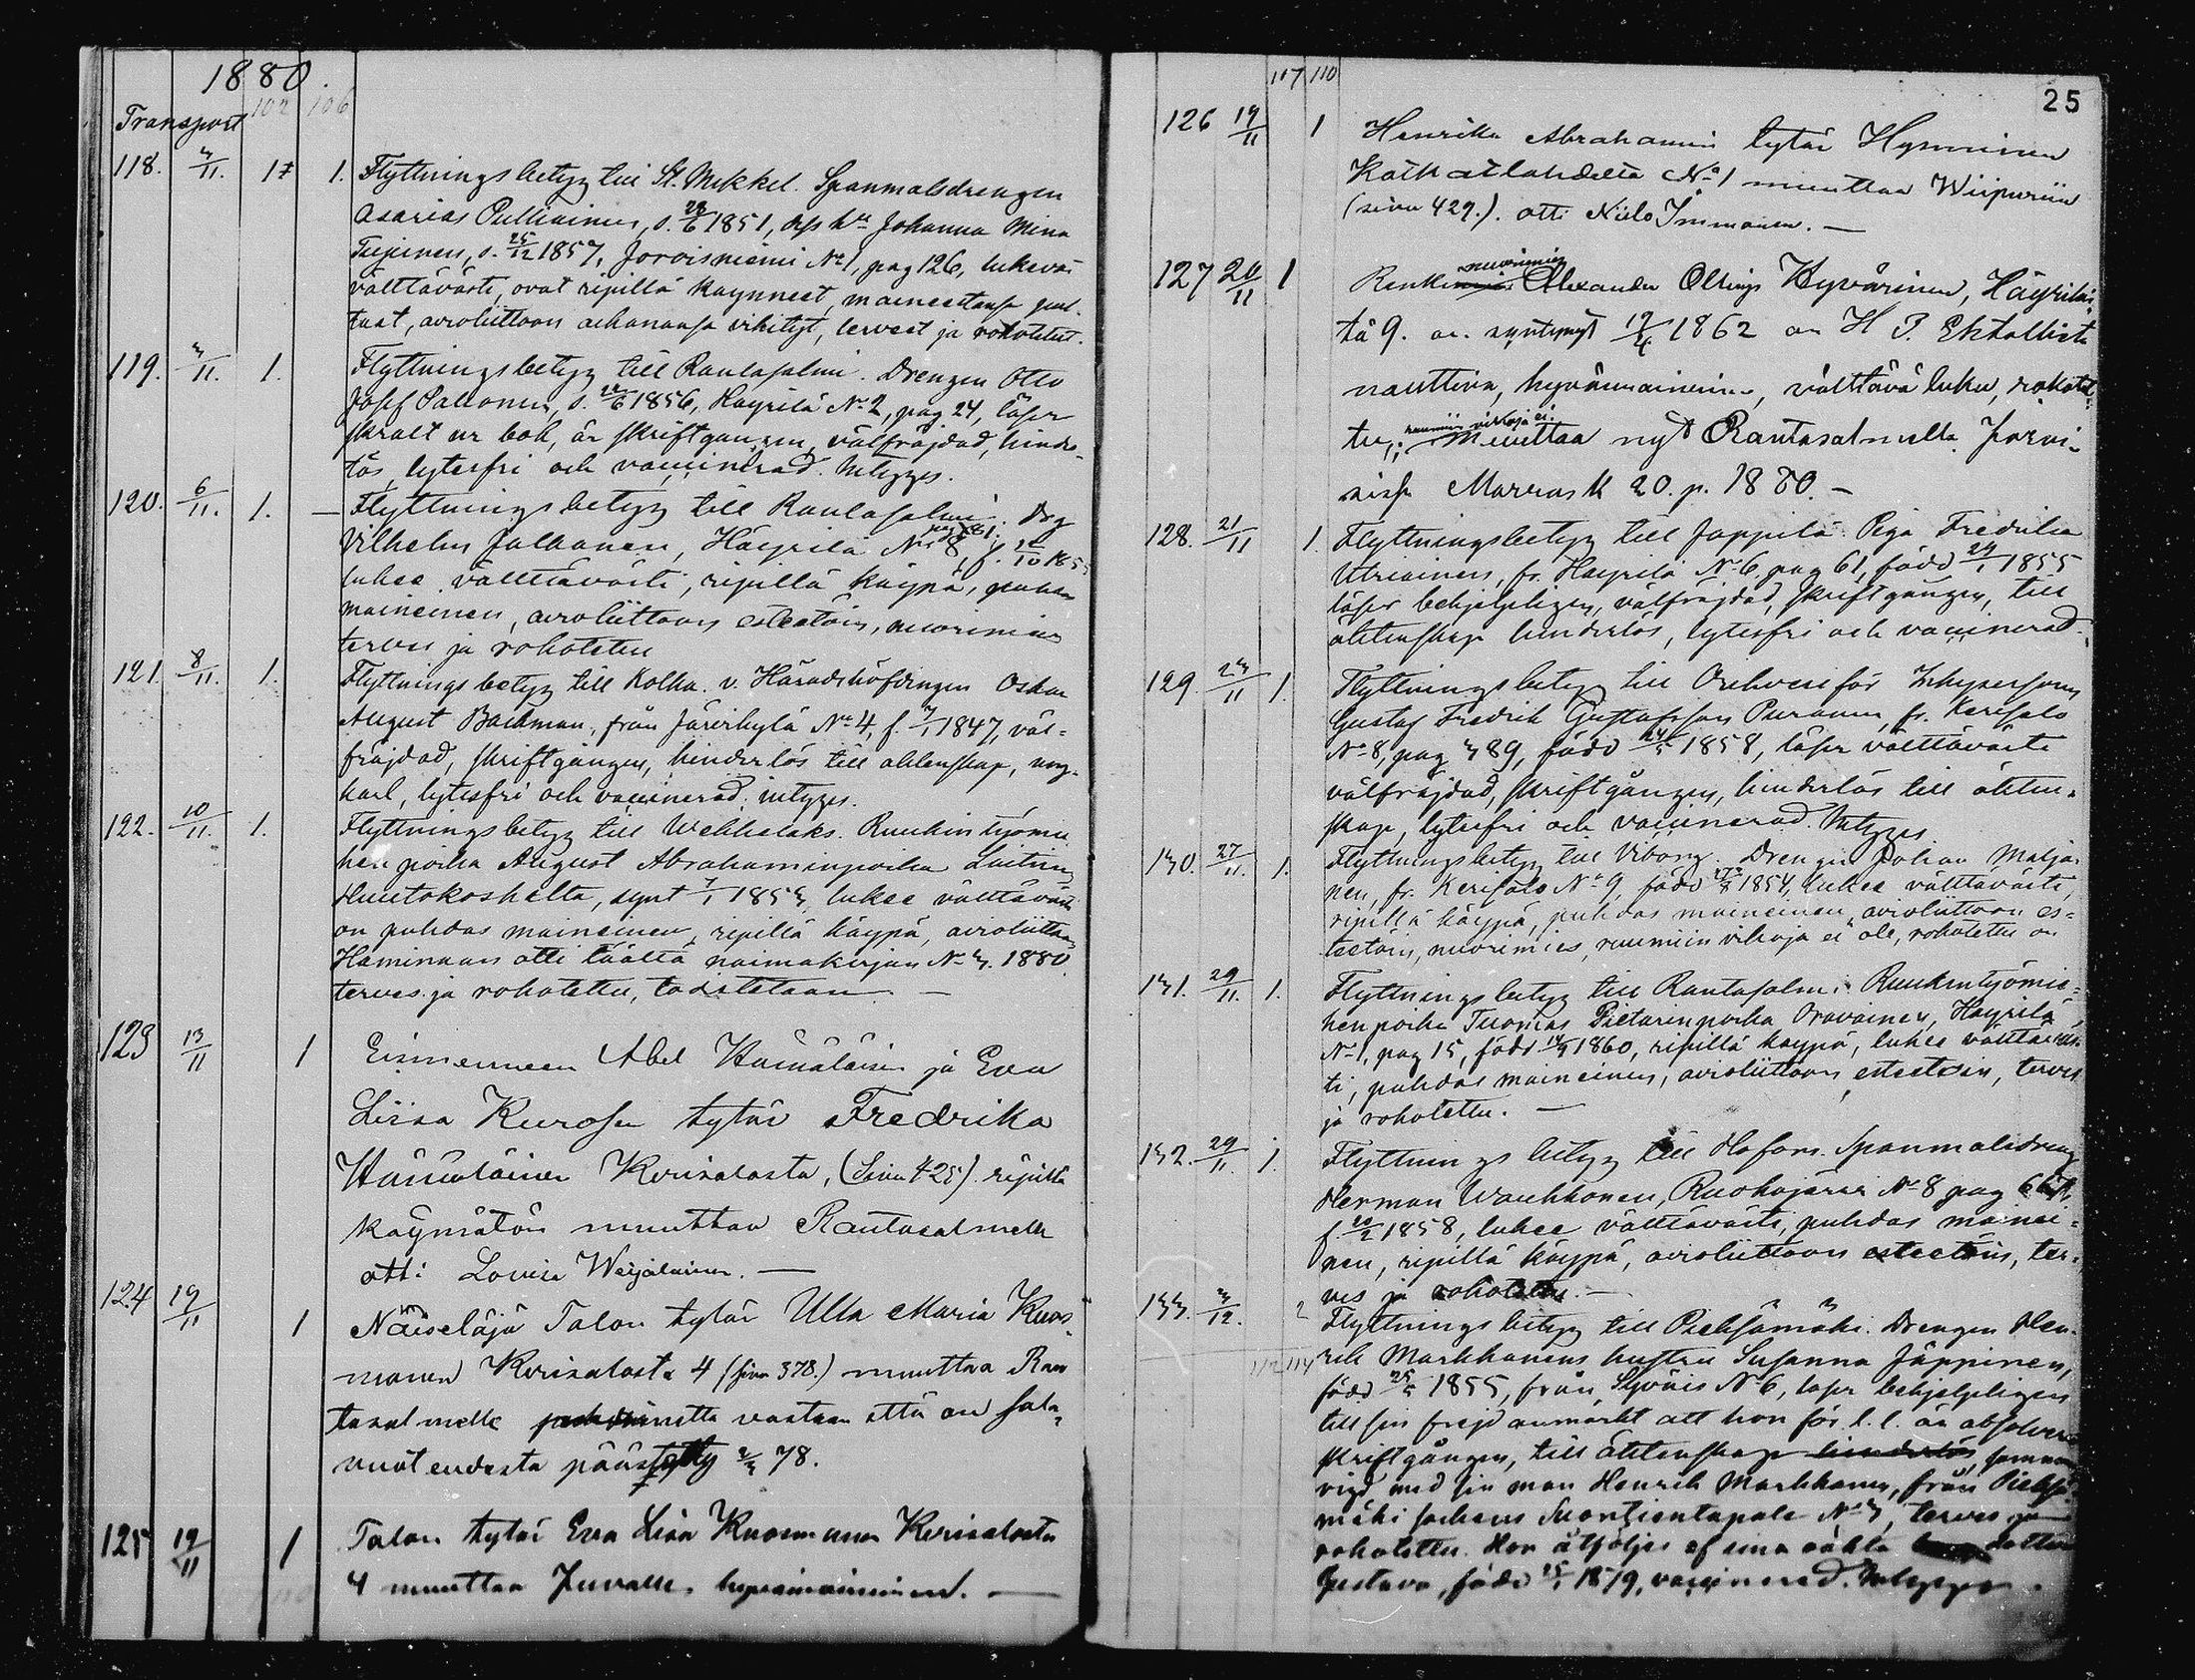 1880.
102 106
Transport
118. 3/11. 1. 1. Flyttningsbetyg till St. Mikkel. Spanmålsdrengen
Asarias Pulliainen, s. 29/6 1851, dess h:u Johanna Mina
s. 25/12 1857, Jorvisniemi No 1, pag 126, lukevat
välttävästi, ovat ripillä käynneet, maineeltansa puh-
taat, avioliittoon aikanansa vihityt, terveet ja rokotetut.
119. 3/11. 1. Flyttningsbetyg till Rantasalmi. Drengen Otto
Josef Pakonen, s. 1856, Häyrilä No 2, pag 24, läser
skralt ur bok, är skriftgången, välfräjdad, hinders-
lös, lytesfri och vaccinerad. Intyges.
120. 6/11. 1. — Flyttningsbetyg till Rantasalmi. Drg
Vilhelm Jalkanen, Häyrilä No 8, pag 81. f. 12/10 1855
lukee välttävästi, ripillä käypä, puhdas
maineinen, avioliittoon esteetöin, nuorimies
terves ja rokotettu
121. 8/11. 1. Flyttningsbetyg till Kolka. v. Häradshöfdingen Oskar
August Backman, från Järvikylä No 4, f. 7/1 1847, väl-
fräjdad, skriftgången, hinderlös till äktenskap, ung-
karl, lytesfri och vaccinerad, intyges.
122. 10/11. 1. Flyttningsbetyg till Wehkalaks. Ruukin työmie
hen poika August Abrahaminpoika
Huutokoskelta, synt 7/1 1853, lukee välttävästi
on puhdas maineinen, ripillä käypä, avioliittoon
Haminaan otti täältä naimakirjan No 3. 1880
terves ja rokotettu, todistetaan. —
123 13/11 1 Eromenneen Abel Hämäläisen ja Eva
Liisa Kurosen tytär Fredrika
Hämäläinen Kerisalosta, (Sivu 425). ripillä
käymätön muuttaa Rantasalmelle
otti Lovisa Weijalainen. —
124 19/11 1 Näiseläjä Talon tytär Ulla Maria Kuos-
manen Kerisalosta 4 (sivu 378.) muuttaa Ran
tasalmelle vastaan että on sala-
vuoteudesta päästetty 2/3 78.
125 19/11 1 Talon tytär Eva Liisa Kuosmanen Kerisalosta
4 muuttaa Juvalle, hyvämaineinen. —
25
107 110
126 19/11 1 Henrika Abrahamin tytär Hynninen
Kaihatlahdelta No 1 muuttaa Wiipuriin
(sivu 429.). otti Nielo Immonen. —
127 20/11 1 Renki nuorimies Alexander Ollinp Hyvärinen, Häyriläs-
tä 9. on syntynyt 1862 on H P. Ehtollista
nauttiva, hyvämaineinen, välttävä luku, rokotet-
tu, ruumiin vikoja ei. Muuttaa nyt Rantasalmelle. Jorvi-
sissa Marrask 20. p. 1880. —
128. 21/11 1. Flyttningsbetyg till Jäppilä. Piga Fredrika
Utriainen, fr. Häyrilä No 6 pag 61, född 24/1 1855
läser behjelpligen, välfräjdad, skriftgången, till
äktenskap hinderlös, lytesfri och vaccinerad.
129. 23/11 1. Flyttningsbetyg till Orihvesi för Inhysesson
Gustaf Fredrik Gustafsson Puranen, fr. Kerisalo
No 8, pag 389, född 24/5 1858, läser välttävästi
välfräjdad, skriftgången, hinderlös till äkten-
skap, lytesfri och vaccinerad. Intyges
130. 27/11. 1. Flyttningsbetyg till Viborg. Drengen Johan Malja-
nen, fr. Kerisalo No 9, född 1854, lukee välttävästi,
ripillä käypä, puhdas maineinen, avioliittoon es-
teetöin, nuorimies, ruumiin vikoja ei ole, rokotettu on
131. 29/11. 1. Flyttningsbetyg till Rantasalmi. Ruukintyömie-
hen poika Tuomas Pietarinpoika Oravainen, Häyrilä
No 1, pag 15, född 14/9 1860, ripillä käypä, lukee välttäväs-
ti, puhdas maineinen, avioliittoon esteetöin, terves
ja rokotettu. —
132. 29/11. 1. Flyttningsbetyg till Hofors. Spanmålsdreng
Herman Waukkonen, Ruokojärvi No 8 pag
f. 20/2 1858, lukee välttävästi, puhdas mainei-
nen, ripillä käypä, avioliittoon esteetöin, ter-
ves ja rokotettu. —
133. 3/12. 2 Flyttningsbetyg till Pieksämäki. Drengen Hen-
112 114 rik Markkanens hustru Susanna Jäppinen,
född 25/5 1855, från Syväis No 6, läser behjelpligen
till sin frejd anmärkt att hon för l. l. är absolverad
skriftgången, till äktenskap hinderlös, samman
vigd med sin man Henrik Markkanen, från Pieksä-
mäki sockens Montientapale No 3, terves ja
rokotettu. Hon åtföljes af sina oäkta dotter
Gustava, född 15/1 1879, vaccinerad. Intyges.